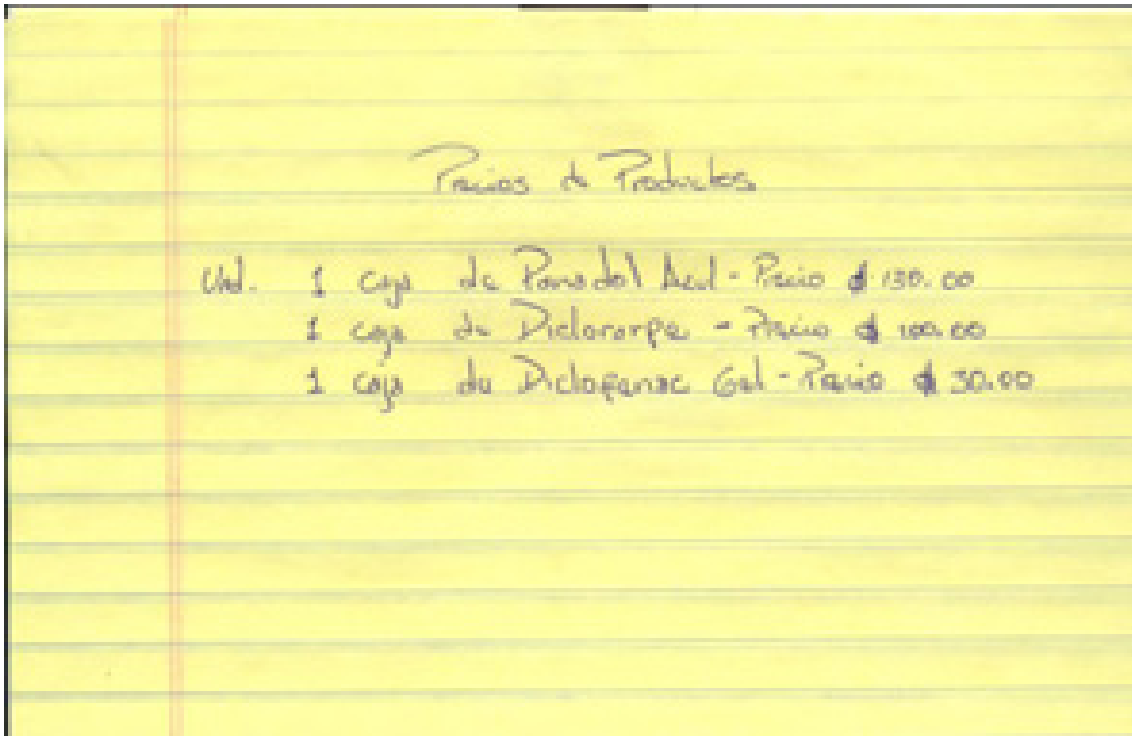 Precios de Productos
Und. 1 caja de Panadol Azul - Precio $ 130.00
1 caja de - Precio $ 100.00
1 caja de Diclofenac Gel - Precio $ 30.00